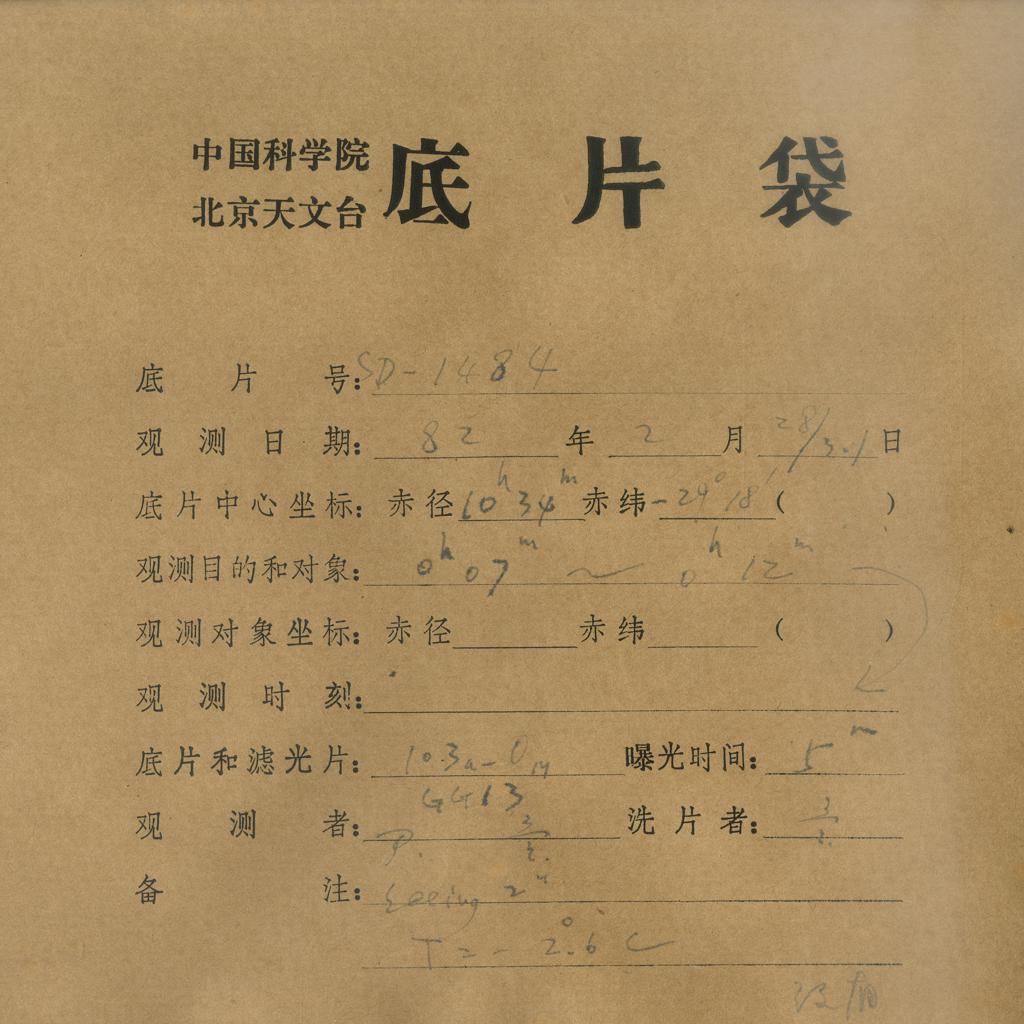 中国科学院
北京天文台
底片袋
底片号: SD-1484
观测日期: 82年 2月 28/3.1日
底片中心坐标: 赤径 10h 34m 赤纬 -24° 18′ ( )
观测目的和对象: 0h 07m ~ 0h 12m
观测对象坐标: 赤径 赤纬 ( )
观测时刻:
底片和滤光片: 103a-O 曝光时间: 5m
GG13
观测者: 洗片者:
备注: seeing 2"
T = - 2°.6 C